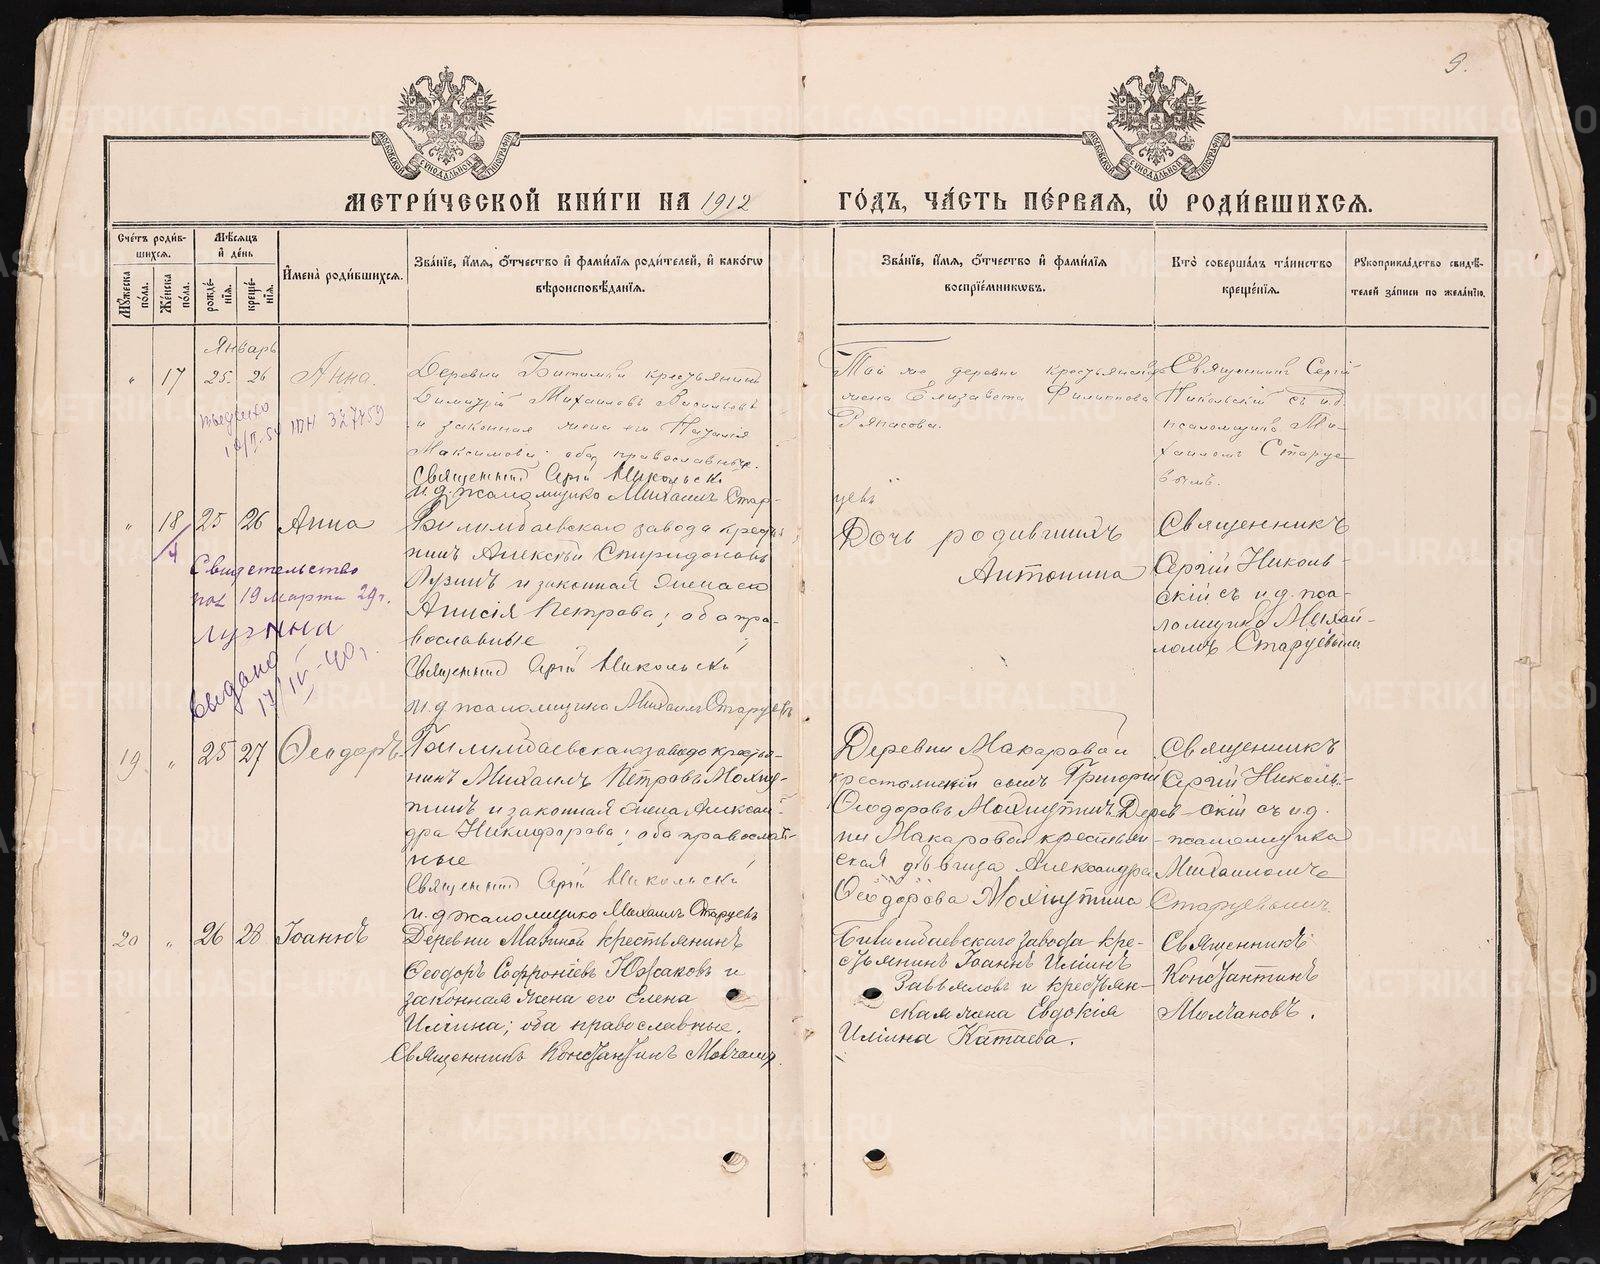 9.
МОСКОВСКОЙ СѴНОДАЛЬНОЙ ТИПОГРАФІИ
МОСКОВСКОЙ СѴНОДАЛЬНОЙ ТИПОГРАФІИ
МЕТРИ́ЧЕСКОЙ КНИ́ГИ НА 1912
ГО́ДЪ, ЧА́СТЬ ПЕ́РВАЯ, Ѽ РОДИ́ВШИХСЯ.
Сче́тъ роди́в-
шихся.
Мꙋ́жеска по́ла.
Же́нска по́ла.
Мѣ́сяцъ
и҆ де́нь
рожде́-
нїя.
креще́-
нїя.
И҆мена̀ роди́вшихся.
Зва́нїе, и҆́мя, ѻ҆́тчество и҆ фами́лїя роди́телей, и҆ како́гѡ
вѣроисповѣ́данїя.
Зва́нїе, и҆́мя, ѻ҆́тчество и҆ фами́лїя
воспрїе́мникѡвъ.
Кто̀ соверша́лъ та́инство
креще́нїя.
Рꙋкоприкла́дство свидѣ́-
телей за́писи по жела́нїю.
Январь
" 17 25. 26 Анна.
Деревни Битимки крестьянинъ
Димитрій Михаиловъ Васильевъ
и законная жена его Наталія
Максимова: оба православные.
Священник Сергій Никольскій
и.д. псаломщика Михаилъ Стар-
цевъ
ІПН 327459
Той же деревни крестьянская
жена Елизавета Филиппова
Ряпасова.
Священникъ Сергій
Никольскій съ и.д.
псаломщика Ми-
хаиломъ Старце
вымъ.
" 18 25 26 Анна
4
Билимбаевскаго завода крестья
нинъ Алексѣй Спиридоновъ
Лузинъ и законная жена его
Анисія Петрова; оба пра-
вославные
Священник Сергій Никольскій
и.д. псаломщика Михаилъ Старцевъ
Свидетельство
19 марта 29 г.
выдано
17/IV-40 г.
Дочь родившихъ
Антонина
Священникъ
Сергій Николь-
скій съ и.д. пса-
ломщика Михаи-
ломъ Старцевымъ
19. " 25 27 Ѳеодоръ
Билимбаевскаго завода крестья-
нинъ Михаилъ Петровъ Мохну-
тинъ и законная жена Алексан-
дра Никифорова; оба православ-
ные
Священник Сергій Никольскій
и.д. псаломщика Михаилъ Старцевъ
Деревни Макаровой
крестьянскій сынъ Григорій
Ѳеодоровъ Мохнутинъ. Дерев-
ни Макаровой крестьян-
ская дѣвица Александра
Ѳеодорова Мохнутина
Священникъ
Сергій Николь-
скій съ и.д.
псаломщика
Михаиломъ
Старцевымъ.
20 " 26 28 Іоаннъ
Деревни Мазиной крестьянинъ
Ѳеодоръ Софроніевъ Южаковъ и
законная жена его Елена
Иліина; оба православные.
Священникъ Константинъ Молчановъ.
Билимбаевскаго завода кре-
стьянинъ Іоаннъ Иліинъ
Завьяловъ и крестьян-
ская жена Евдокія
Иліина Катаева.
Священникъ
Константинъ
Молчановъ.
METRIKI.GASO-URAL.RU